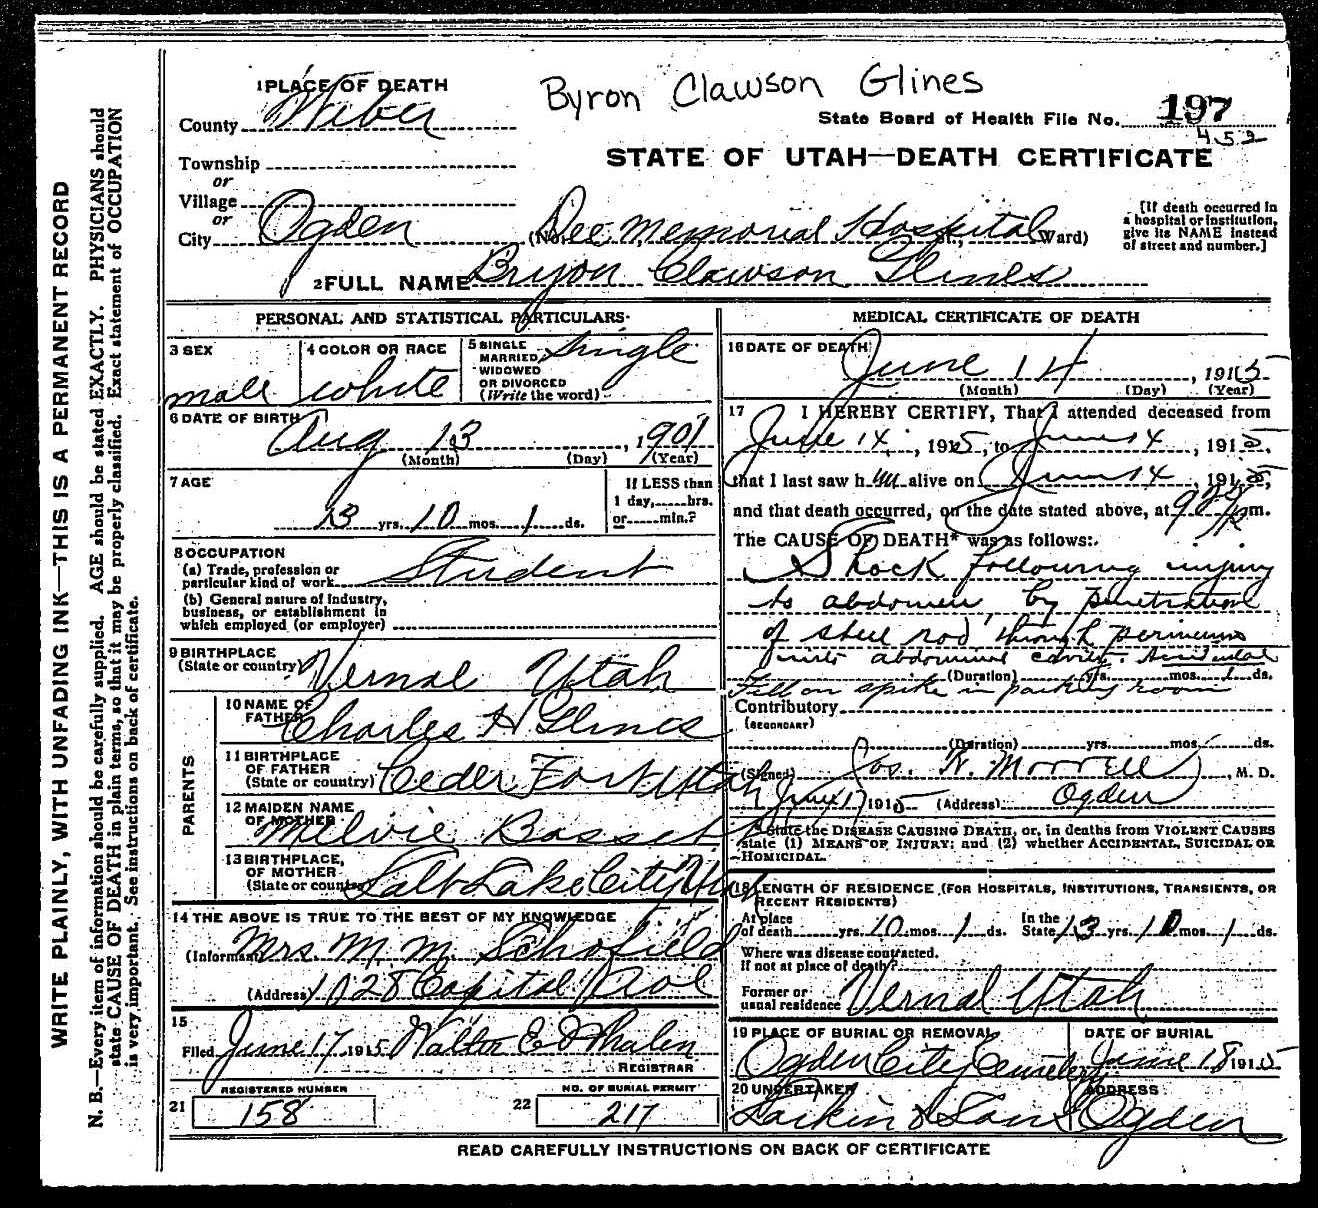 Byron Clawson Glines
1 PLACE OF DEATH
County Weber
State Board of Health File No. 197
452
Township
or
Village
or
City Ogden
STATE OF UTAH—DEATH CERTIFICATE
(No. Dee Memorial Hospital St., Ward)
[If death occurred in
a hospital or institution,
give its NAME instead
of street and number.]
2 FULL NAME Bryon Clawson Glines
PERSONAL AND STATISTICAL PARTICULARS
3 SEX
male
4 COLOR OR RACE
white
5 SINGLE
MARRIED,
WIDOWED
OR DIVORCED
(Write the word)
Single
6 DATE OF BIRTH
Aug 13, 1901
(Month) (Day) (Year)
7 AGE
13 yrs. 10 mos. 1 ds.
If LESS than
1 day, hrs.
or min.?
8 OCCUPATION
(a) Trade, profession or
particular kind of work Student
(b) General nature of industry,
business, or establishment in
which employed (or employer)
9 BIRTHPLACE
(State or country) Vernal Utah
PARENTS
10 NAME OF
FATHER Charles H Glines
11 BIRTHPLACE
OF FATHER
(State or country) Ceder Fort Utah
12 MAIDEN NAME
OF MOTHER Melvie Bassett
13 BIRTHPLACE,
OF MOTHER
(State or country) Salt Lake City Utah
14 THE ABOVE IS TRUE TO THE BEST OF MY KNOWLEDGE
(Informant) Mrs. M. M. Schofield
(Address) 1028 Capitol
15
Filed June 17 1915 Walter E Whalen
REGISTRAR
REGISTERED NUMBER
21 158
NO. OF BURIAL PERMIT
22 217
MEDICAL CERTIFICATE OF DEATH
16 DATE OF DEATH
June 14, 1915
(Month) (Day) (Year)
17 I HEREBY CERTIFY, That I attended deceased from
June 14, 1915, to June 14, 1915,
that I last saw him alive on June 14, 1915,
and that death occurred, on the date stated above, at m.
The CAUSE OF DEATH* was as follows:
Shock following injury
to abdomen, by penetration
of steel rod through perineum
into abdominal cavity. Accidental
(Duration) yrs. mos. 1 ds.
Fell on spike in packing room
Contributory
(SECONDARY)
(Duration) yrs. mos. ds.
(Signed) Jos. R. Morrell, M. D.
June 17 1915 (Address) Ogden
*State the DISEASE CAUSING DEATH, or, in deaths from VIOLENT CAUSES
state (1) MEANS OF INJURY; and (2) whether ACCIDENTAL, SUICIDAL OR
HOMICIDAL.
18 LENGTH OF RESIDENCE (FOR HOSPITALS, INSTITUTIONS, TRANSIENTS, OR
RECENT RESIDENTS)
At place
of death yrs. 10 mos. 1 ds.
In the
State 13 yrs. 10 mos. 1 ds.
Where was disease contracted.
If not at place of death?
Former or
usual residence Vernal Utah
19 PLACE OF BURIAL OR REMOVAL
Ogden City Cemetery
DATE OF BURIAL
June 18 1915
20 UNDERTAKER
Larkin & Sons
ADDRESS
Ogden
READ CAREFULLY INSTRUCTIONS ON BACK OF CERTIFICATE
WRITE PLAINLY, WITH UNFADING INK—THIS IS A PERMANENT RECORD
N. B.—Every item of information should be carefully supplied. AGE should be stated EXACTLY. PHYSICIANS should
state CAUSE OF DEATH in plain terms, so that it may be properly classified. Exact statement of OCCUPATION
is very important. See instructions on back of certificate.